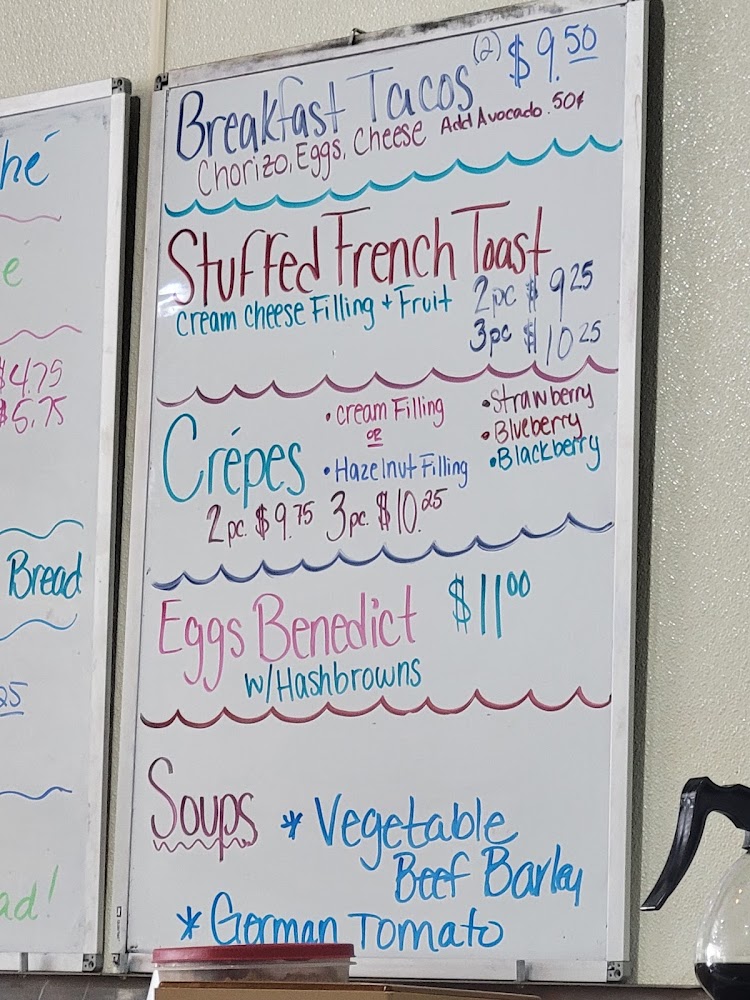 hé
é
$4.75
$5.75
Bread
25
ad!
Breakfast Tacos (2) $9.50
Chorizo, Eggs, Cheese Add Avocado .50¢
Stuffed French Toast
cream cheese Filling + Fruit 2pc $9.25
3pc $10.25
Crépes
• cream Filling
or
• Hazelnut Filling
• Strawberry
• Blueberry
• Blackberry
2pc. $9.75 3pc. $10.25
Eggs Benedict $11.00
w/Hashbrowns
Soups * Vegetable
Beef Barley
* German Tomato